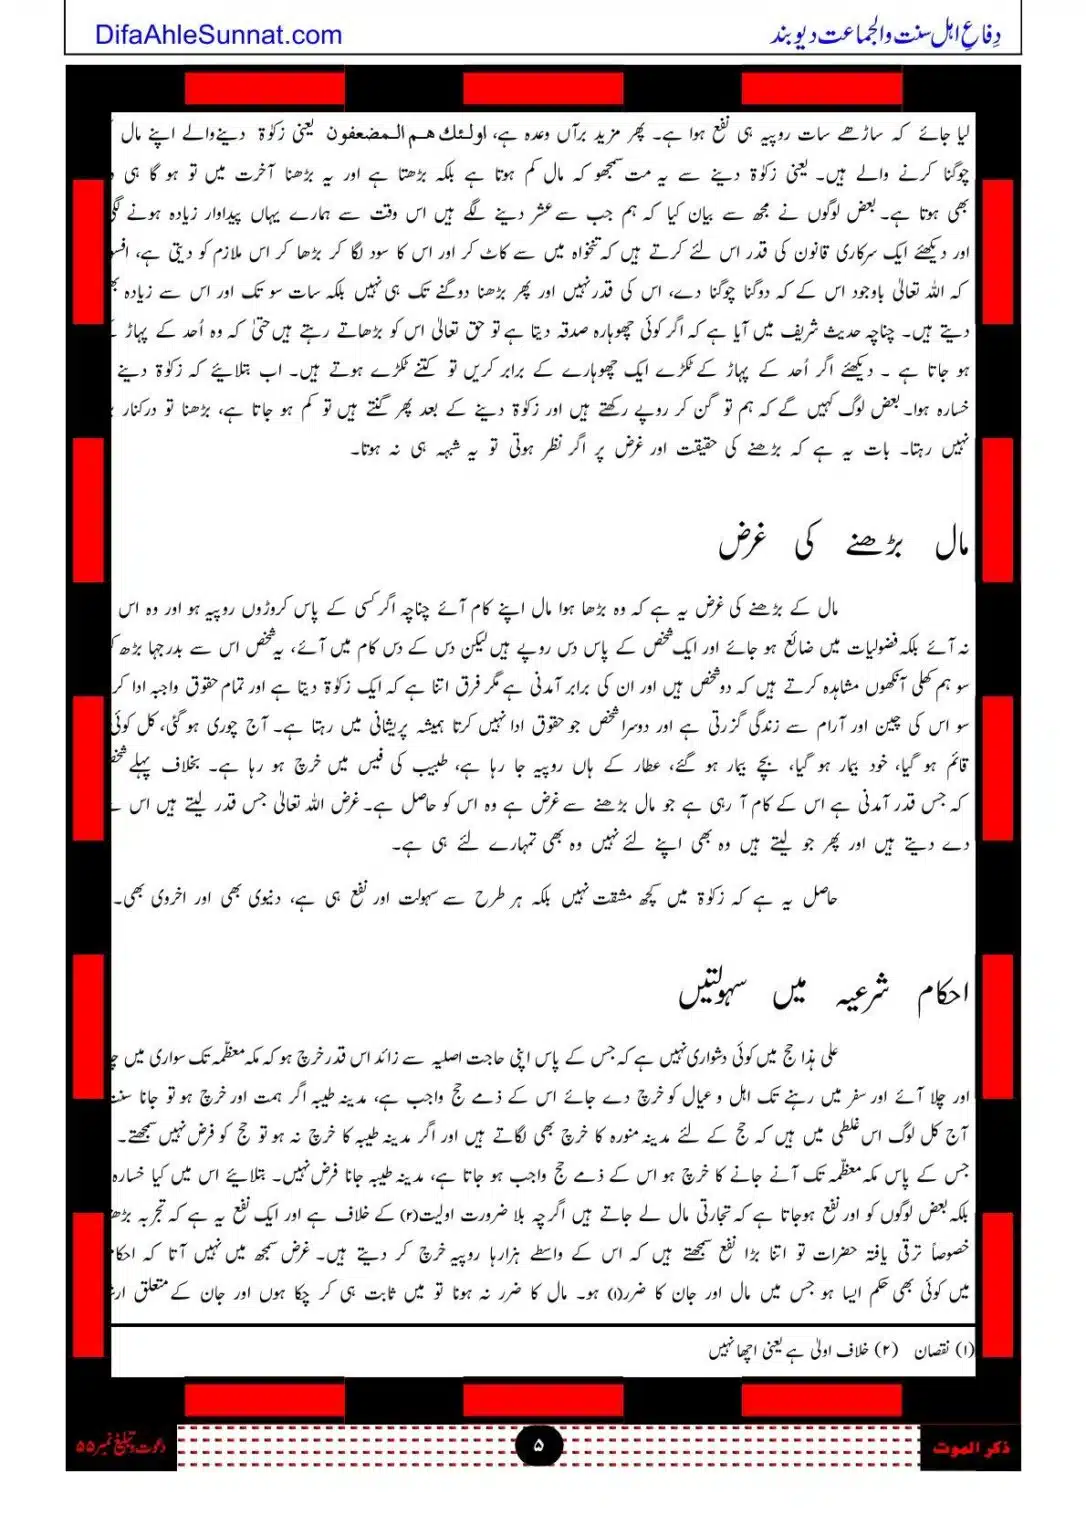 DifaAhleSunnat.com
دِفاعِ اهل سنت والجماعت دیوبند
لیا جائے کہ ساڑھے سات روپیہ ہی نفع ہوا ہے۔ پھر مزید برآں وعدہ ہے، اولئك هم المضعفون یعنی زکوٰۃ دینے والے اپنے مال
چوگنا کرنے والے ہیں۔ یعنی زکوٰۃ دینے سے یہ مت سمجھو کہ مال کم ہوتا ہے بلکہ بڑھتا ہے اور یہ بڑھنا آخرت میں تو ہو گا ہی
بھی ہوتا ہے۔ بعض لوگوں نے مجھ سے بیان کیا کہ ہم جب سے عشر دینے لگے ہیں اس وقت سے ہمارے یہاں پیداوار زیادہ ہونے لگی
اور دیکھئے ایک سرکاری قانون کی قدر اس لئے کرتے ہیں کہ تنخواہ میں سے کاٹ کر اور اس کا سود لگا کر بڑھا کر اس ملازم کو دیتی ہے،
کہ اللہ تعالیٰ باوجود اس کے کہ دوگنا چوگنا دے، اس کی قدر نہیں اور پھر بڑھنا دوگنے تک ہی نہیں بلکہ سات سو تک اور اس سے زیادہ
دیتے ہیں۔ چناچہ حدیث شریف میں آیا ہے کہ اگر کوئی چھوہارہ صدقہ دیتا ہے تو حق تعالیٰ اس کو بڑھاتے رہتے ہیں حتیٰ کہ وہ اُحد کے پہاڑ
ہو جاتا ہے ۔ دیکھئے اگر اُحد کے پہاڑ کے ٹکڑے ایک چھوہارے کے برابر کریں تو کتنے ٹکڑے ہوتے ہیں۔ اب بتلایئے کہ زکوٰۃ دینے
خسارہ ہوا۔ بعض لوگ کہیں گے کہ ہم تو گن کر روپے رکھتے ہیں اور زکوٰۃ دینے کے بعد پھر گنتے ہیں تو کم ہو جاتا ہے، بڑھنا تو درکنار
نہیں رہتا۔ بات یہ ہے کہ بڑھنے کی حقیقت اور غرض پر اگر نظر ہوتی تو یہ شبہہ ہی نہ ہوتا۔
مال بڑھنے کی غرض
مال کے بڑھنے کی غرض یہ ہے کہ وہ بڑھا ہوا مال اپنے کام آئے چناچہ اگر کسی کے پاس کروڑوں روپیہ ہو اور وہ اس
نہ آئے بلکہ فضولیات میں ضائع ہو جائے اور ایک شخص کے پاس دس روپے ہیں لیکن دس کے دس کام میں آئے، یہ شخص اس سے بدرجہا بڑھ
سو ہم کھلی آنکھوں مشاہدہ کرتے ہیں کہ دو شخص ہیں اور ان کی برابر آمدنی ہے مگر فرق اتنا ہے کہ ایک زکوٰۃ دیتا ہے اور تمام حقوق واجبہ ادا کر
سو اس کی چین اور آرام سے زندگی گزرتی ہے اور دوسرا شخص جو حقوق ادا نہیں کرتا ہمیشہ پریشانی میں رہتا ہے۔ آج چوری ہو گئی، کل کوئی
قائم ہو گیا، خود بیمار ہو گیا، بچے بیمار ہو گئے، عطار کے ہاں روپیہ جا رہا ہے، طبیب کی فیس میں خرچ ہو رہا ہے۔ بخلاف پہلے
کہ جس قدر آمدنی ہے اس کے کام آ رہی ہے جو مال بڑھنے سے غرض ہے وہ اس کو حاصل ہے۔ غرض اللہ تعالیٰ جس قدر لیتے ہیں اس
دے دیتے ہیں اور پھر جو لیتے ہیں وہ بھی اپنے لئے نہیں وہ بھی تمہارے لئے ہی ہے۔
حاصل یہ ہے کہ زکوٰۃ میں کچھ مشقت نہیں بلکہ ہر طرح سے سہولت اور نفع ہی ہے، دنیوی بھی اور اخروی بھی۔
احکام شرعیہ میں سہولتیں
علی ہذا حج میں کوئی دشواری نہیں ہے کہ جس کے پاس اپنی حاجت اصلیہ سے زائد اس قدر خرچ ہو کہ مکہ معظّمہ تک سواری میں
اور چلا آئے اور سفر میں رہنے تک اہل و عیال کو خرچ دے جائے اس کے ذمے حج واجب ہے، مدینہ طیبہ اگر ہمت اور خرچ ہو تو جانا سنت
آج کل لوگ اس غلطی میں ہیں کہ حج کے لئے مدینہ منورہ کا خرچ بھی لگاتے ہیں اور اگر مدینہ طیبہ کا خرچ نہ ہو تو حج کو فرض نہیں سمجھتے۔
جس کے پاس مکہ معظّمہ تک آنے جانے کا خرچ ہو اس کے ذمے حج واجب ہو جاتا ہے، مدینہ طیبہ جانا فرض نہیں۔ بتلایئے اس میں کیا خسارہ
بلکہ بعض لوگوں کو اور نفع ہوجاتا ہے کہ تجارتی مال لے جاتے ہیں اگرچہ بلا ضرورت اولیت(۲) کے خلاف ہے اور ایک نفع یہ ہے کہ تجربہ
خصوصاً ترقی یافتہ حضرات تو اتنا بڑا نفع سمجھتے ہیں کہ اس کے واسطے ہزارہا روپیہ خرچ کر دیتے ہیں۔ غرض سمجھ میں نہیں آتا کہ
میں کوئی بھی حکم ایسا ہو جس میں مال اور جان کا ضرر(۱) ہو۔ مال کا ضرر نہ ہونا تو میں ثابت ہی کر چکا ہوں اور جان کے متعلق
(۱) نقصان (۲) خلاف اولیٰ ہے یعنی اچھا نہیں
ذکر الموت
۵
دعوت و تبلیغ نمبر ۵۵